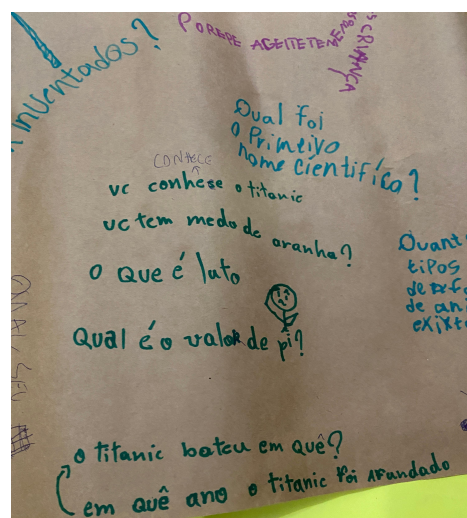 inventados?
POREPE AGEITETEM
CRIANÇA
Qual foi
o Primeiro
nome científica?
CONHECE
vc conhese o titanic
vc tem medo de aranha?
o que é luto
Qual é o valor de pi?
Quant
tipos
de an
exixte
QUAL SEU
o titanic bateu em quê?
em quê ano o titanic foi afundado